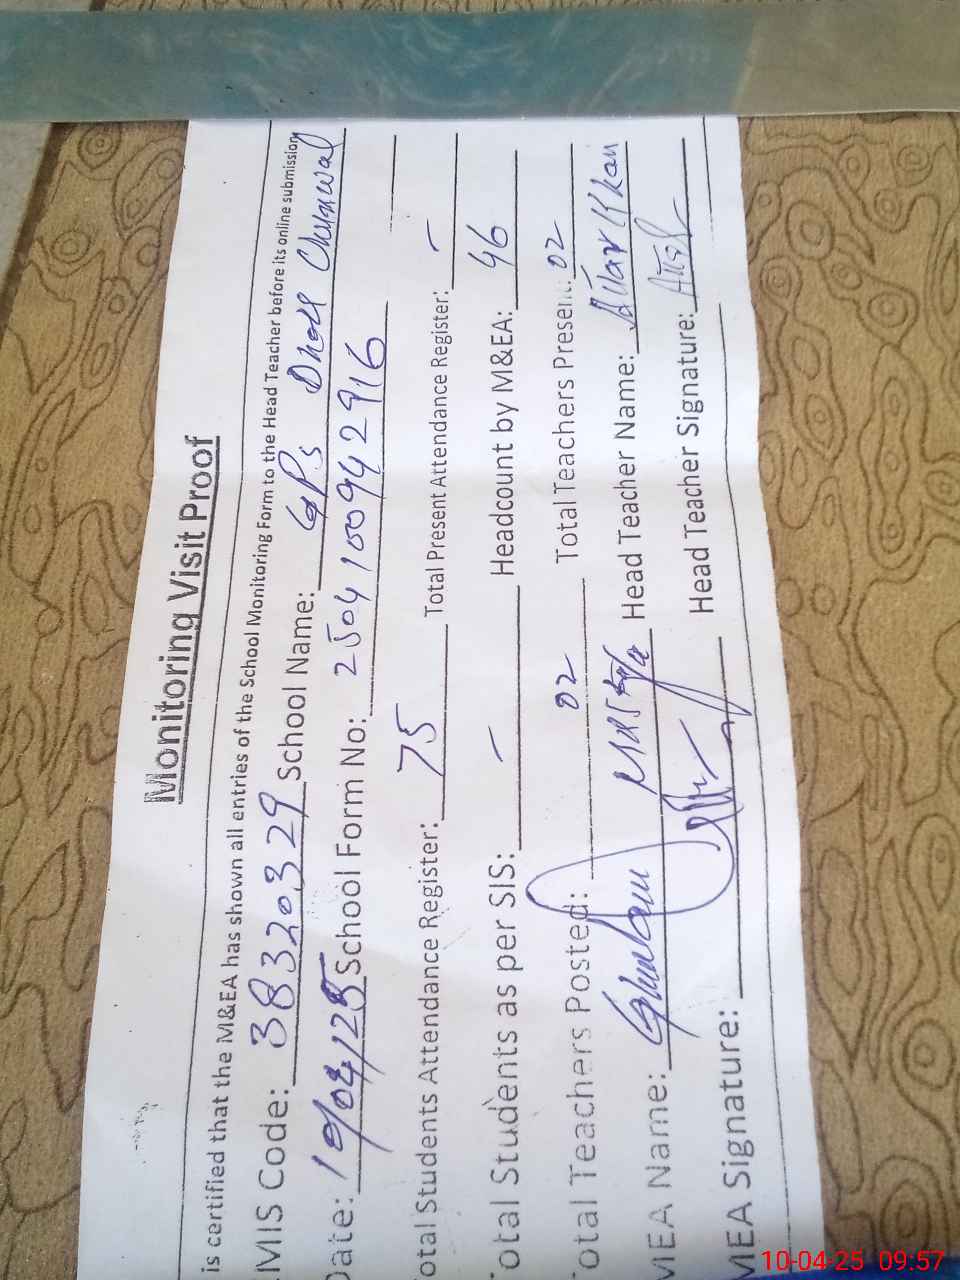 Monitoring Visit Proof
is certified that the M&EA has shown all entries of the School Monitoring Form to the Head Teacher before its online submission
MIS Code: 38320329 School Name: GPS Dhok Chunwal
Date: 10/04/25 School Form No: 2504100942916
otal Students Attendance Register: 75 Total Present Attendance Register: -
otal Students as per SIS: - Headcount by M&EA: 46
otal Teachers Posted: 02 Total Teachers Present: 02
MEA Name: Ghulam Mustafa Head Teacher Name: Attar Khan
MEA Signature: Head Teacher Signature:
10-04-25 09:57